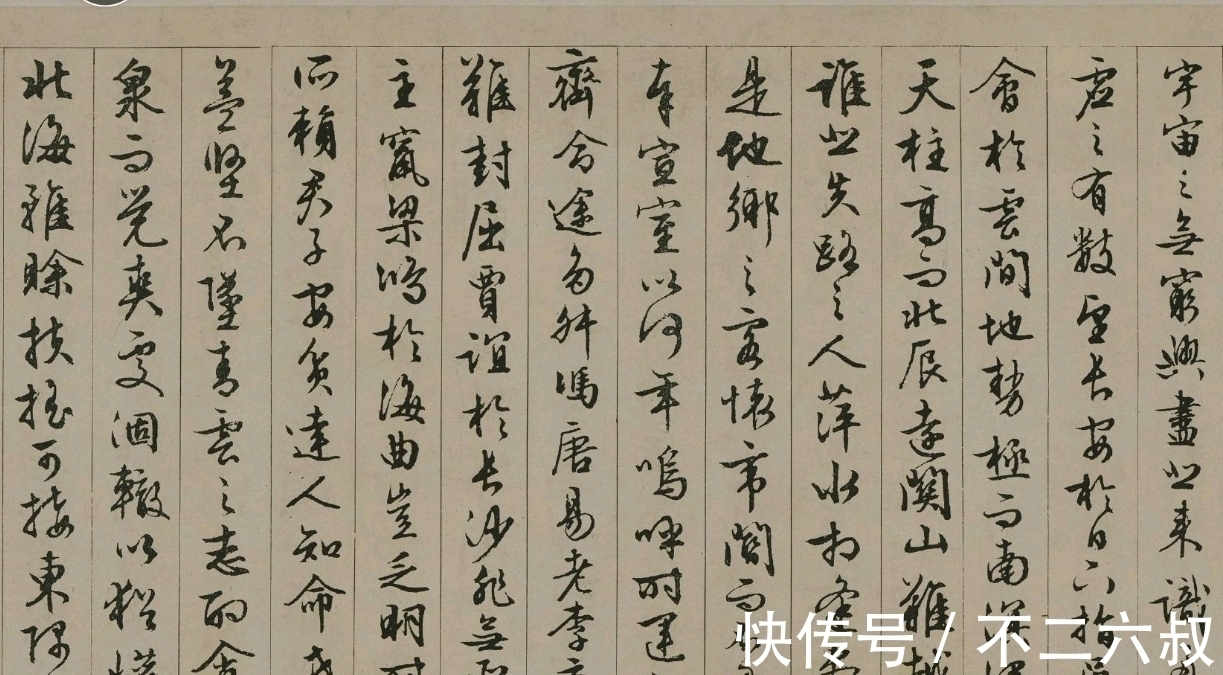 宇宙之無窮興盡悲来識
虚之有數望長安於日下指
會於雲間地勢極而南
天柱高而北辰遠關山難越
誰悲失路之人萍水相逢
是他鄉之客懷帝閽而
奉宣室以何年嗚呼時運
齊命途多舛馮唐易老李
難封屈賈誼於長沙非無
主竄梁鴻於海曲豈乏明時
所賴君子安貧達人知命
益堅不墜青雲之志酌貪
泉而覺爽處涸轍以猶
北海雖賖扶搖可接東隅
快传号 / 不二六叔